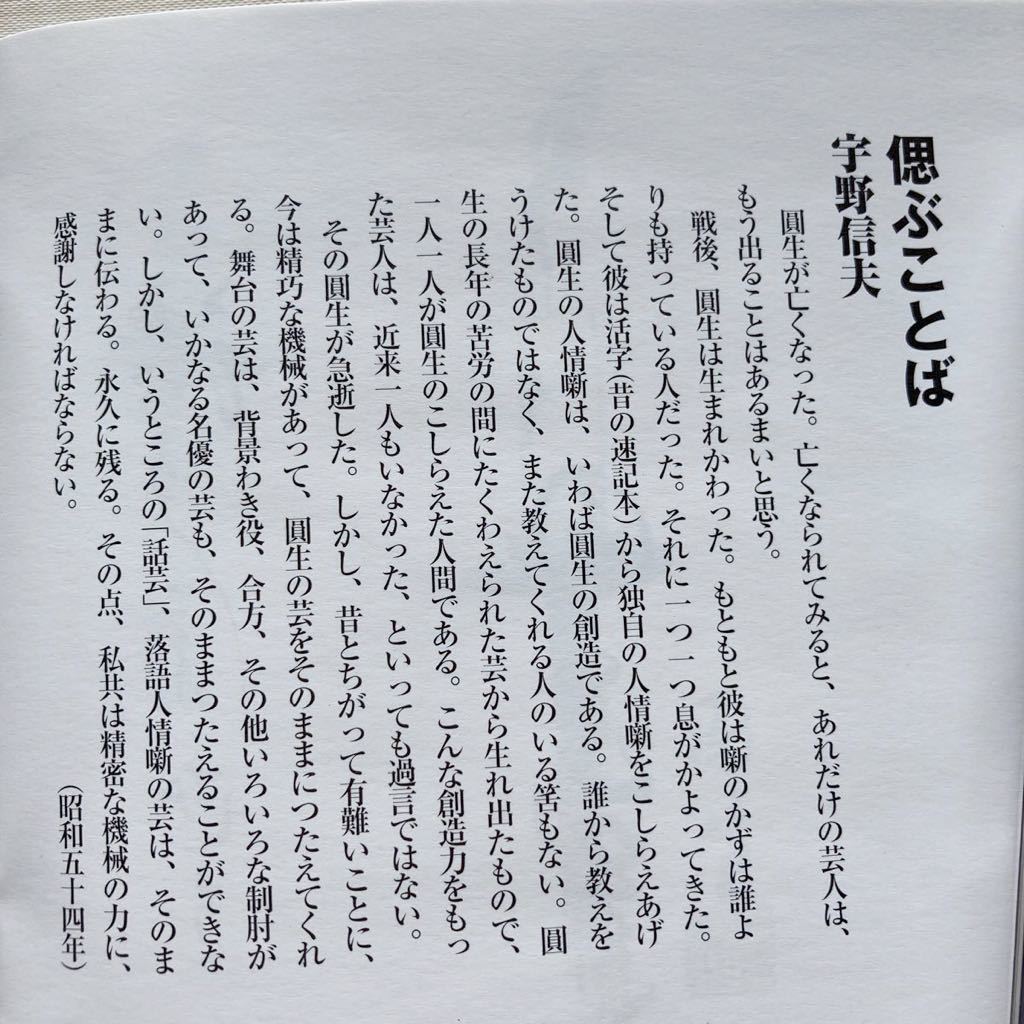 偲ぶことば
宇野信夫
圓生が亡くなった。亡くなられてみると、あれだけの芸人は、
もう出ることはあるまいと思う。
戦後、圓生は生まれかわった。もともと彼は噺のかずは誰よ
りも持っている人だった。それに一つ一つ息がかよってきた。
そして彼は活字(昔の速記本)から独自の人情噺をこしらえあげ
た。圓生の人情噺は、いわば圓生の創造である。誰から教えを
うけたものではなく、また教えてくれる人のいる筈もない。圓
生の長年の苦労の間にたくわえられた芸から生れ出たもので、
一人一人が圓生のこしらえた人間である。こんな創造力をもっ
た芸人は、近来一人もいなかった、といっても過言ではない。
その圓生が急逝した。しかし、昔とちがって有難いことに、
今は精巧な機械があって、圓生の芸をそのままにつたえてくれ
る。舞台の芸は、背景わき役、合方、その他いろいろな制肘が
あって、いかなる名優の芸も、そのままつたえることができな
い。しかし、いうところの「話芸」、落語人情噺の芸は、そのま
まに伝わる。永久に残る。その点、私共は精密な機械の力に、
感謝しなければならない。
(昭和五十四年)